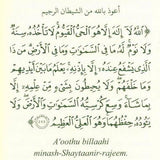 أعوذ بالله من الشيطان الرجيم
ٱللَّهُ لَآ إِلَٰهَ إِلَّا هُوَ ٱلْحَىُّ ٱلْقَيُّومُ لَا تَأْخُذُهُۥ سِنَةٌ
وَلَا نَوْمٌ لَّهُۥ مَا فِى ٱلسَّمَٰوَٰتِ وَمَا فِى ٱلْأَرْضِ مَن ذَا
ٱلَّذِى يَشْفَعُ عِندَهُۥٓ إِلَّا بِإِذْنِهِۦ يَعْلَمُ مَا بَيْنَ أَيْدِيهِمْ
وَمَا خَلْفَهُمْ وَلَا يُحِيطُونَ بِشَىْءٍ مِّنْ عِلْمِهِۦٓ إِلَّا
بِمَا شَآءَ وَسِعَ كُرْسِيُّهُ ٱلسَّمَٰوَٰتِ وَٱلْأَرْضَ وَلَا
يَـُٔودُهُۥ حِفْظُهُمَا وَهُوَ ٱلْعَلِىُّ ٱلْعَظِيمُ
A'oothu billaahi
minash-Shaytaanir-rajeem.